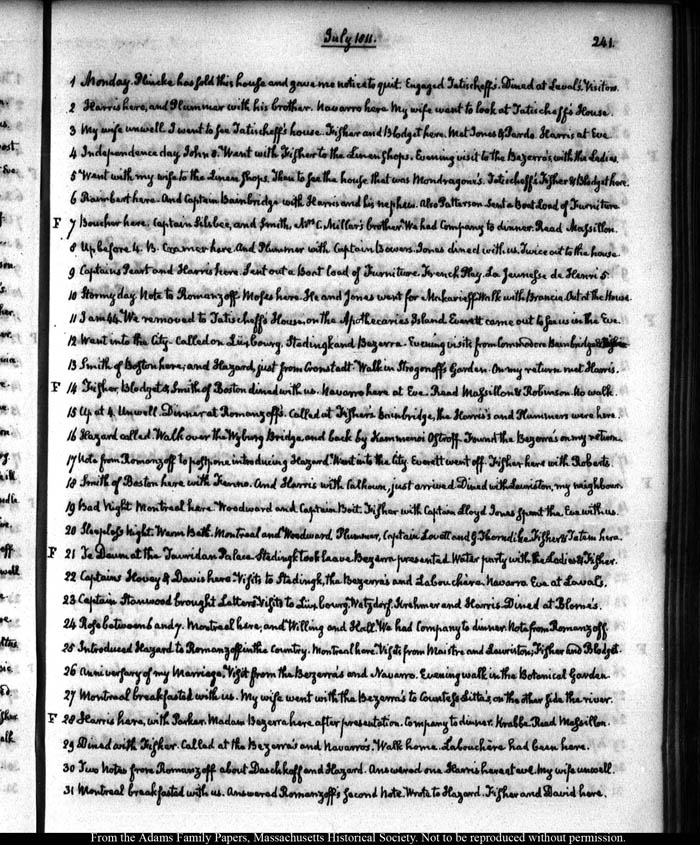 July 1811.
241.
1 Monday. Plincke has sold this house and gave me notice to quit. Engaged Tatischeff's. Dined at Laval's. Visitors.
2 Harris here, and Plummer with his brother. Navarro here My wife went to look at Tatischeff's House.
3 My wife unwell. I went to see Tatischeff's house. Fisher and Blodget here. Met Jones & Pardo. Harris at Eve
4 Independence day John 8. Went with Fisher to the Linen Shops. Evening visit to the Bezerra's, with the Ladies
5 Went with my wife to the Linen Shops. Then to see the house that was Mondragone's. Tatischeff's Fisher & Blodget here.
6 Raimbert here. And Captain Bainbridge with Harris and his nephew. Also Patterson. Sent a Boat Load of Furniture
F 7 Boucher here, Captain Silsbee, and Smith, Mrs C. Miller's brother We had Company to dinner. Read Massillon.
8 Up before 4. B. Cramer here. And Plummer with Captain Bowers. Jones dined with us. Twice out to the house.
9 Captains Peart and Harris here. Sent out a Boat load of Furniture. French Play. La Jeunesse de Henri 5.
10 Stormy day. Note to Romanzoff. Moses here. He and Jones went for Makarieff. Walk with Brancia. Out at the House
11 I am 44. We removed to Tatischeff's House, on the Apothecaries Island. Everett came out to see us in the Eve.
12 Went into the City. Called on Luxbourg, Stedingk and Bezerra. Evening visits from Commodore Bainbridge &
13 Smith of Boston here; and Hazard, just from Cronstadt. Walk in Strogonoff's Garden. On my return met Harris.
F 14 Fisher, Blodget & Smith of Boston dined with us. Navarro here at Eve. Read Massillon & Robinson. No walk.
15 Up at 4. Unwell. Dinner at Romanzoff's. Called at Fisher's Bainbridge, the Harris's and Plummers were here
16 Hazard called. Walk over the Wyburg Bridge, and back by Kammenoi Ostroff. Found the Bezerra's on my return.
17 Note from Romanzoff to postpone introducing Hazard. Went into the City. Everett went off. Fisher here with Roberts.
18 Smith of Boston here with Fenno. And Harris with Calhoun, just arrived. Dined with Lauriston, my neighbour.
19 Bad Night. Montreal here Woodward and Captain Boit. Fisher with Captain Lloyd Jones spent the Eve with us.
20 Sleepless Night. Warm Bath. Montreal and Woodward. Plummer, Captain Lovett and G. Thorndike Fisher & Tatem here.
F 21 Te Deum at the Tauridan Palace. Stedingk took leave Bezerra presented. Water party with the Ladies & Fisher.
22 Captains Hovey & Davis here. Visits to Stedingk, the Bezerra's and Labouchere. Navarro Eve at Laval's.
23 Captain Stanwood brought Letters. Visits to Luxbourg, Watzdorf, Krehmer and Harris. Dined at Blome's.
24 Rose between 6 and 7. Montreal here, and Willing and Hall. We had Company to dinner. Note from Romanzoff
25 Introduced Hazard to Romanzoff in the Country. Montreal here. Visits from Maistre and Lauriston; Fisher and Blodget.
26 Anniversary of my Marriage. Visit from the Bezerra's and Navarro. Evening walk in the Botanical Garden.
27 Montreal breakfasted with us. My wife went with the Bezerra's to Countess Litta's, on the other side the river.
F 28 Harris here, with Parker. Madam Bezerra here after presentation. Company to dinner. Krabbe. Read Massillon.
29 Dined with Fisher. Called at the Bezerra's and Navarro's. Walk home. Labouchere had been here.
30 Two Notes from Romanzoff about Daschkoff and Hazard. Answered one Harris here at eve. My wife unwell.
31 Montreal breakfasted with us. Answered Romanzoff's second Note. Wrote to Hazard. Fisher and David here.
From the Adams Family Papers, Massachusetts Historical Society. Not to be reproduced without permission.